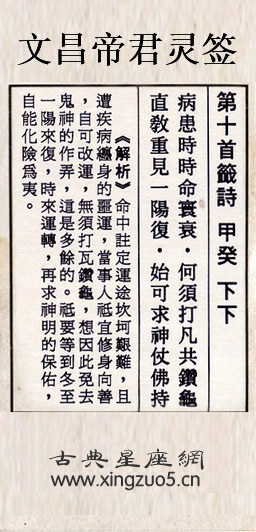 文昌帝君灵签
第十首籤詩 甲癸 下下
病患時時命寰衰．何須打凡共鑽龜
直教重見一陽復．始可求神仗佛持
《解析》命中註定運途坎坷艱難，且
遭疾病纏身的噩運，當事人祗宜修身向善
，自可改運，無須打瓦鑽龜，想因此免去
鬼神的作弄，這是多餘的。祗要等到冬至
一陽來復，時來運轉，再求神明的保佑，
自能化險爲夷。
古典星座網
www.xingzuo5.cn